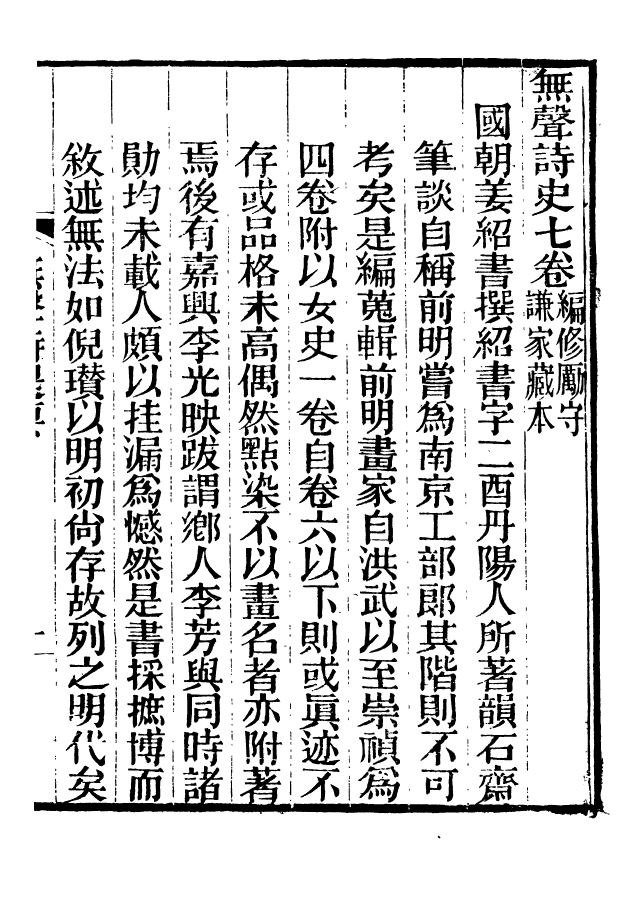 無聲詩史七卷編修勵守謙家藏本
國朝姜紹書撰紹書字二酉丹陽人所著韻石齋
筆談自稱前明嘗爲南京工部郎其階則不可
考矣是編蒐輯前明畫家自洪武以至崇禎爲
四卷附以女史一卷自卷六以下則或眞迹不
存或品格未高偶然點染不以畫名者亦附著
焉後有嘉興李光映跋謂鄉人李芳與同時諸
勛均未載人頗以挂漏爲憾然是書採摭博而
敘述無法如倪瓚以明初尙存故列之明代矣